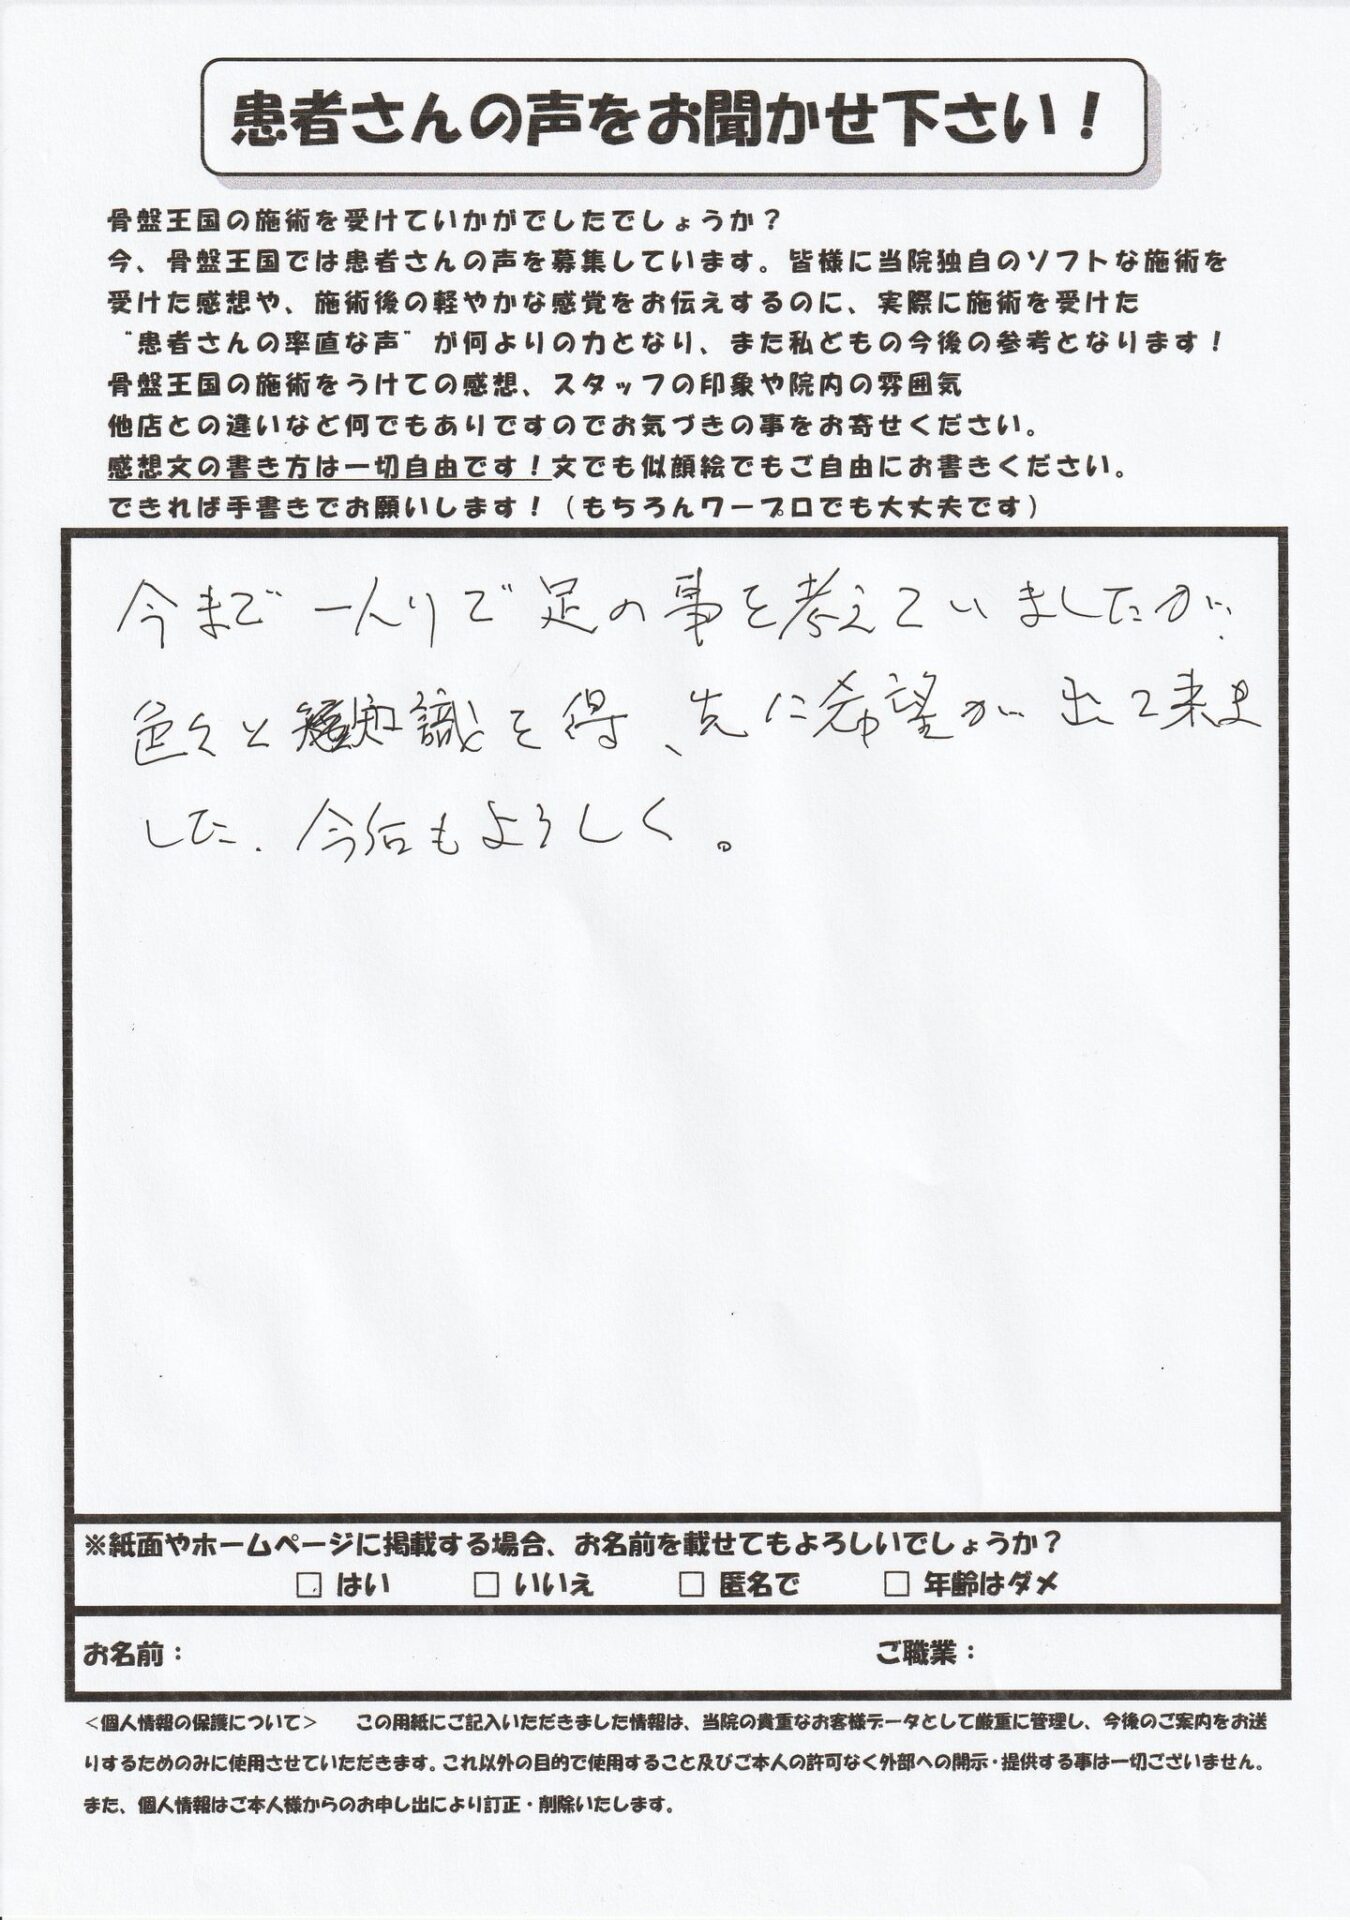 患者さんの声をお聞かせ下さい！
骨盤王国の施術を受けていかがでしたでしょうか？
今、骨盤王国では患者さんの声を募集しています。皆様に当院独自のソフトな施術を
受けた感想や、施術後の軽やかな感覚をお伝えするのに、実際に施術を受けた
"患者さんの率直な声"が何よりの力となり、また私どもの今後の参考となります！
骨盤王国の施術をうけての感想、スタッフの印象や院内の雰囲気
他店との違いなど何でもありですのでお気づきの事をお寄せください。
感想文の書き方は一切自由です！文でも似顔絵でもご自由にお書きください。
できれば手書きでお願いします！（もちろんワープロでも大丈夫です）
今まで一人りで足の事を考えていましたが、
色々と知識を得、先に希望が出て来ま
した。今后もよろしく。
※紙面やホームページに掲載する場合、お名前を載せてもよろしいでしょうか？
□ はい □ いいえ □ 匿名で □ 年齢はダメ
お名前： ご職業：
＜個人情報の保護について＞ この用紙にご記入いただきました情報は、当院の貴重なお客様データとして厳重に管理し、今後のご案内をお送
りするためのみに使用させていただきます。これ以外の目的で使用すること及びご本人の許可なく外部への開示・提供する事は一切ございません。
また、個人情報はご本人様からのお申し出により訂正・削除いたします。